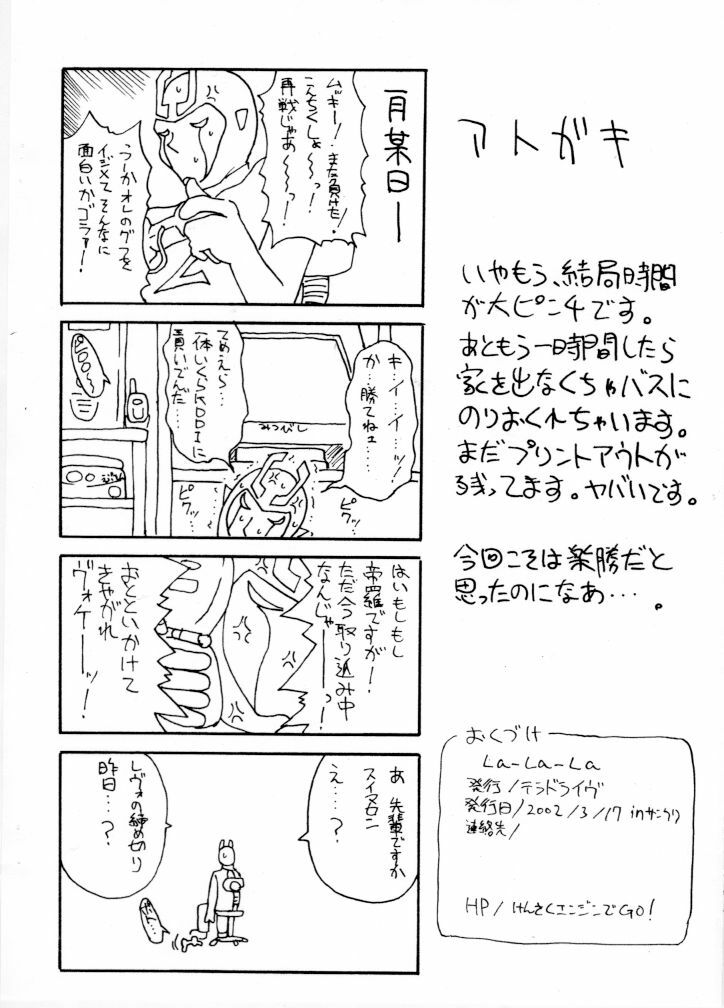 アトガキ
いやもう、結局時間
が大ピンチです。
あともう一時間したら
家を出なくちゃバスに
のりおくれちゃいます。
まだプリントアウトが
残ってます。ヤバいです。
今回こそは楽勝だと
思ったのになあ…。
おくづけ
La-La-La
発行/テラドライヴ
発行日/2002/3/17 in
連絡先/
HP/けんさくエンジンでGO!
一月某日ー
ムッキー!また負けた!
こんちくしょ〜〜っ!
再戦じゃあ〜〜っ!
うーかオレのグフを
イジメてそんなに
面白いかゴラァー!
キ…イ…イ…ッ!
か…勝てねェ……
みつがし
てめえら…
一体いくらKDDIに
貢いでんだ……
ピクッ…
ピクッ…
はいもしもし
帝羅ですが!
ただ今取り込み中
なんじゃーーっ!
おとといかけて
きやがれ
ヴォケーーッ!
あ 先輩ですか
スイマセン
え…?
レヴォの締め切り
昨日…?